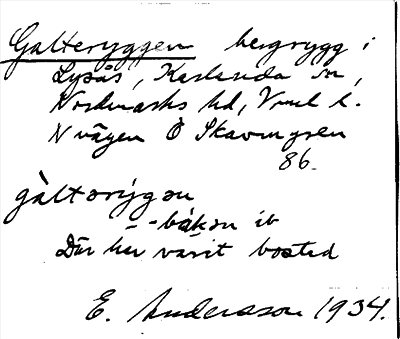 Galteryggen bergrygg i
Lysås, Karlanda sn,
Nordmarks hd, Vrml l.
N vägen Ö Skavmyren
86.
gàltərýgən
- - bakən ib
Där har varit bosted
E. Andersson 1934.